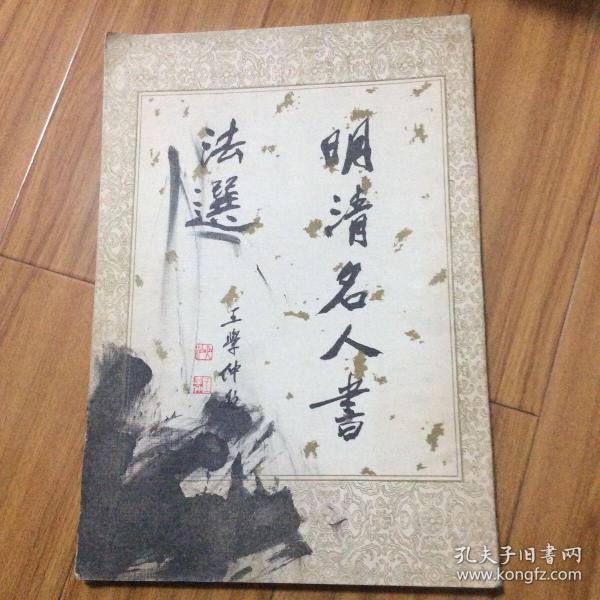 明清名人書
法選
王學仲
孔夫子旧书网
www.kongfz.com